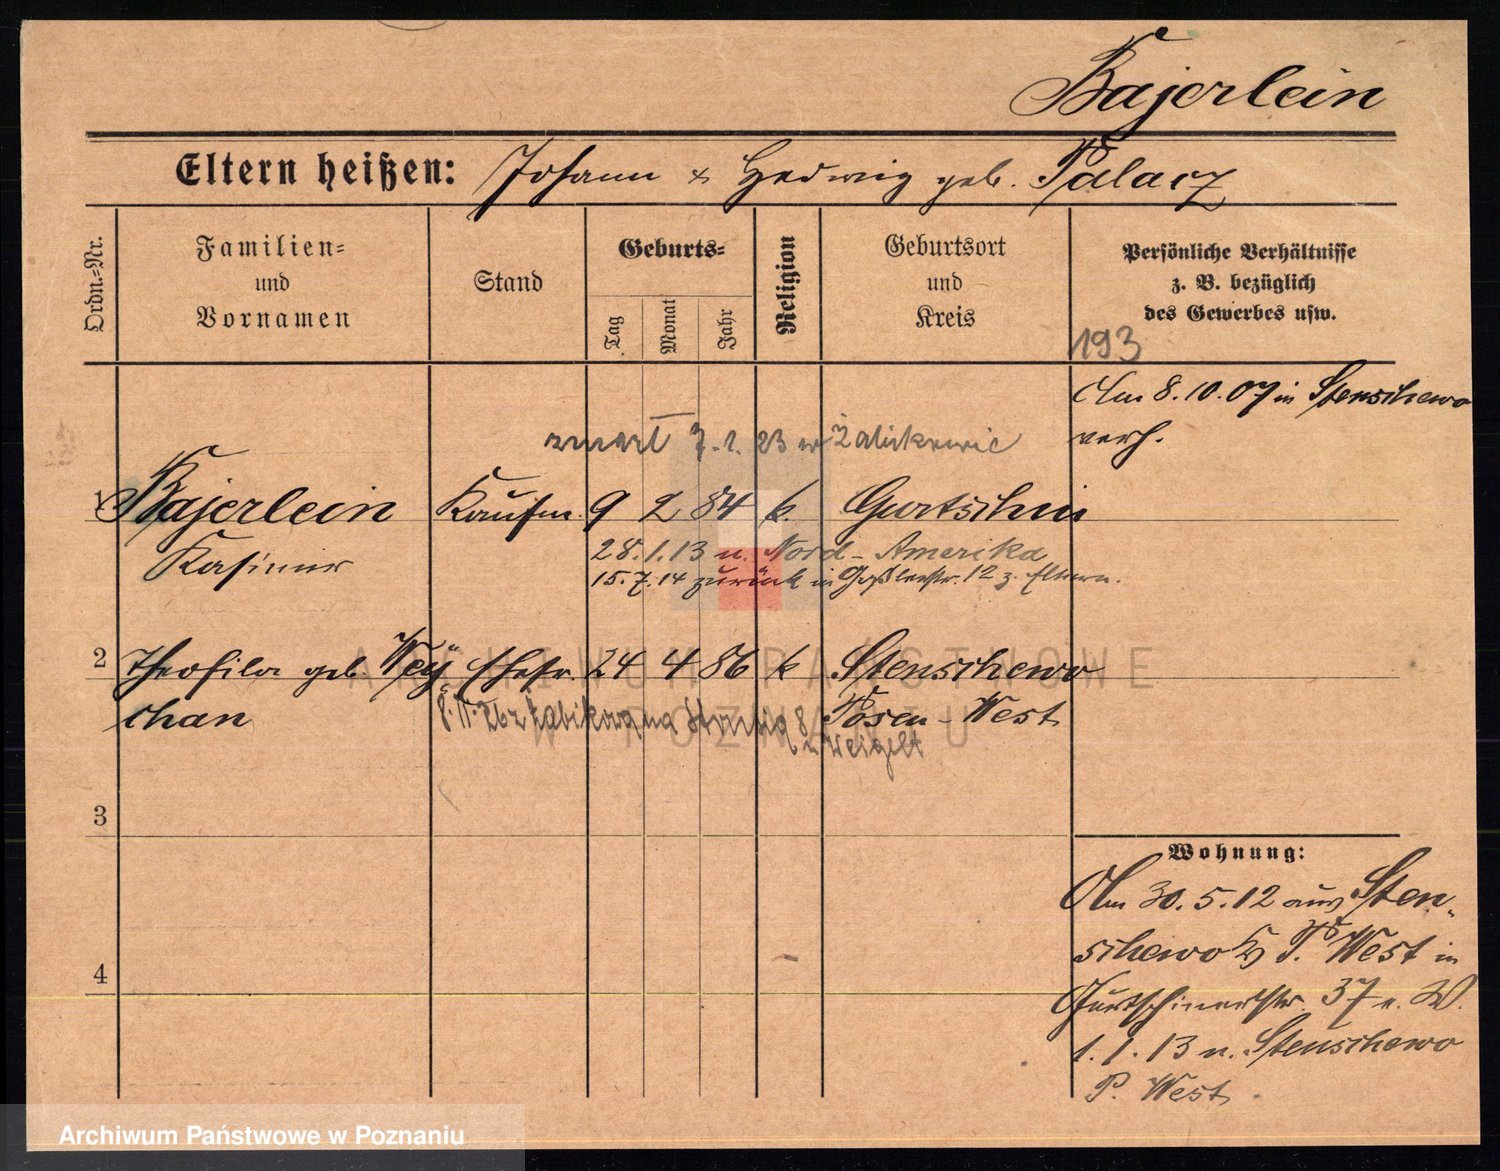 Bajerlein
Eltern heißen: Johann & Hedwig geb. Palacz
Ordn.-Nr.
Familien-
und
Vornamen
Stand
Geburts-
Tag
Monat
Jahr
Religion
Geburtsort
und
Kreis
Persönliche Verhältnisse
z. B. bezüglich
des Gewerbes usw.
193
Am 8.10.07 in Stenschewo
verh.
zmarł 7.1.23 w
1 Bajerlein Kaufm. 9 2 84 k. Gurtschin
Kasimir
28.1.13 n. Nord-Amerika
15.7.14 zurück in Goßlerstr. 12 z. Eltern.
2 Theofila geb. Wey Ehefr. 24 4 86 k Stenschewo
chan Posen-West
8.11.26 z na 8
u Weigelt
3
4
Wohnung:
Am 30.5.12 aus Sten-
schewo P. West in
Gurtschinerstr. 37 e. W.
1.1.13 n. Stenschewo
P. West
ARCHIWUM PAŃSTWOWE
W POZNANIU
Archiwum Państwowe w Poznaniu